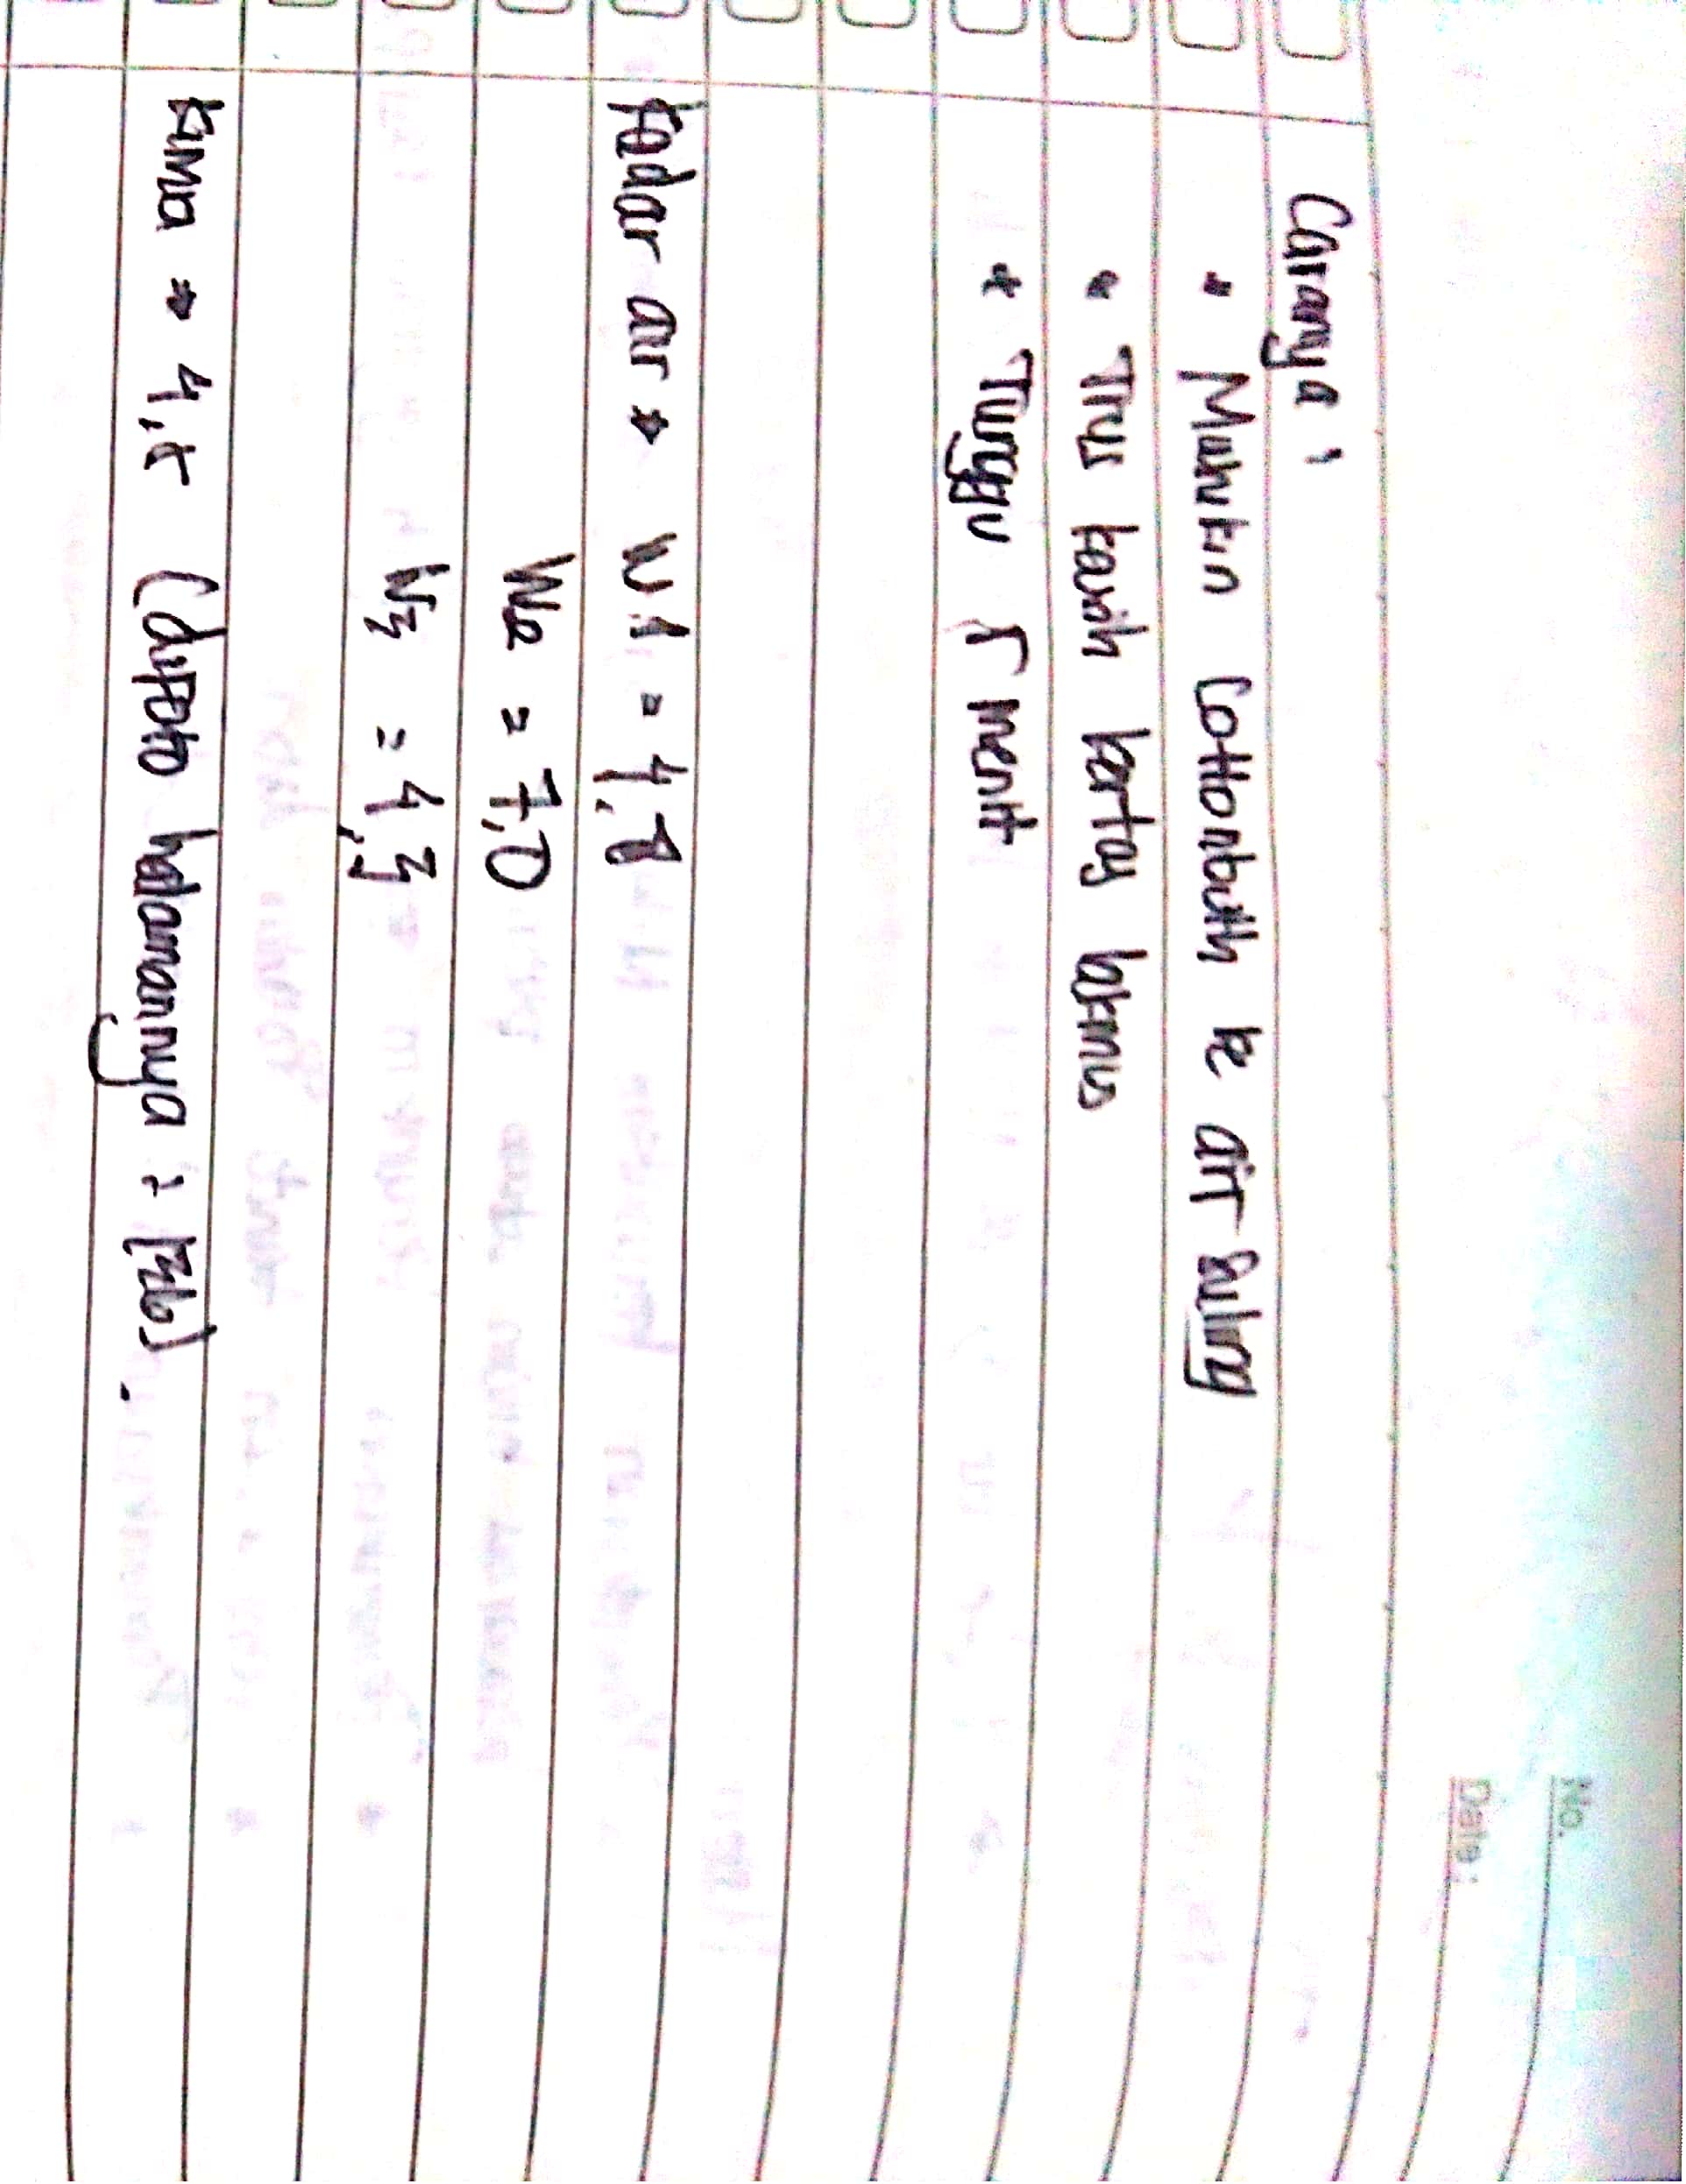 No.
Date :
Caranya :
• Masukin Cottonbuth ke air suling
• Trus kasih kertas lakmus
• Tunggu 5 menit
Kadar air → W1 = 4,8
W2 = 7,0
W3 = 4,3
Kimia → 4,5 (difoto halamannya :